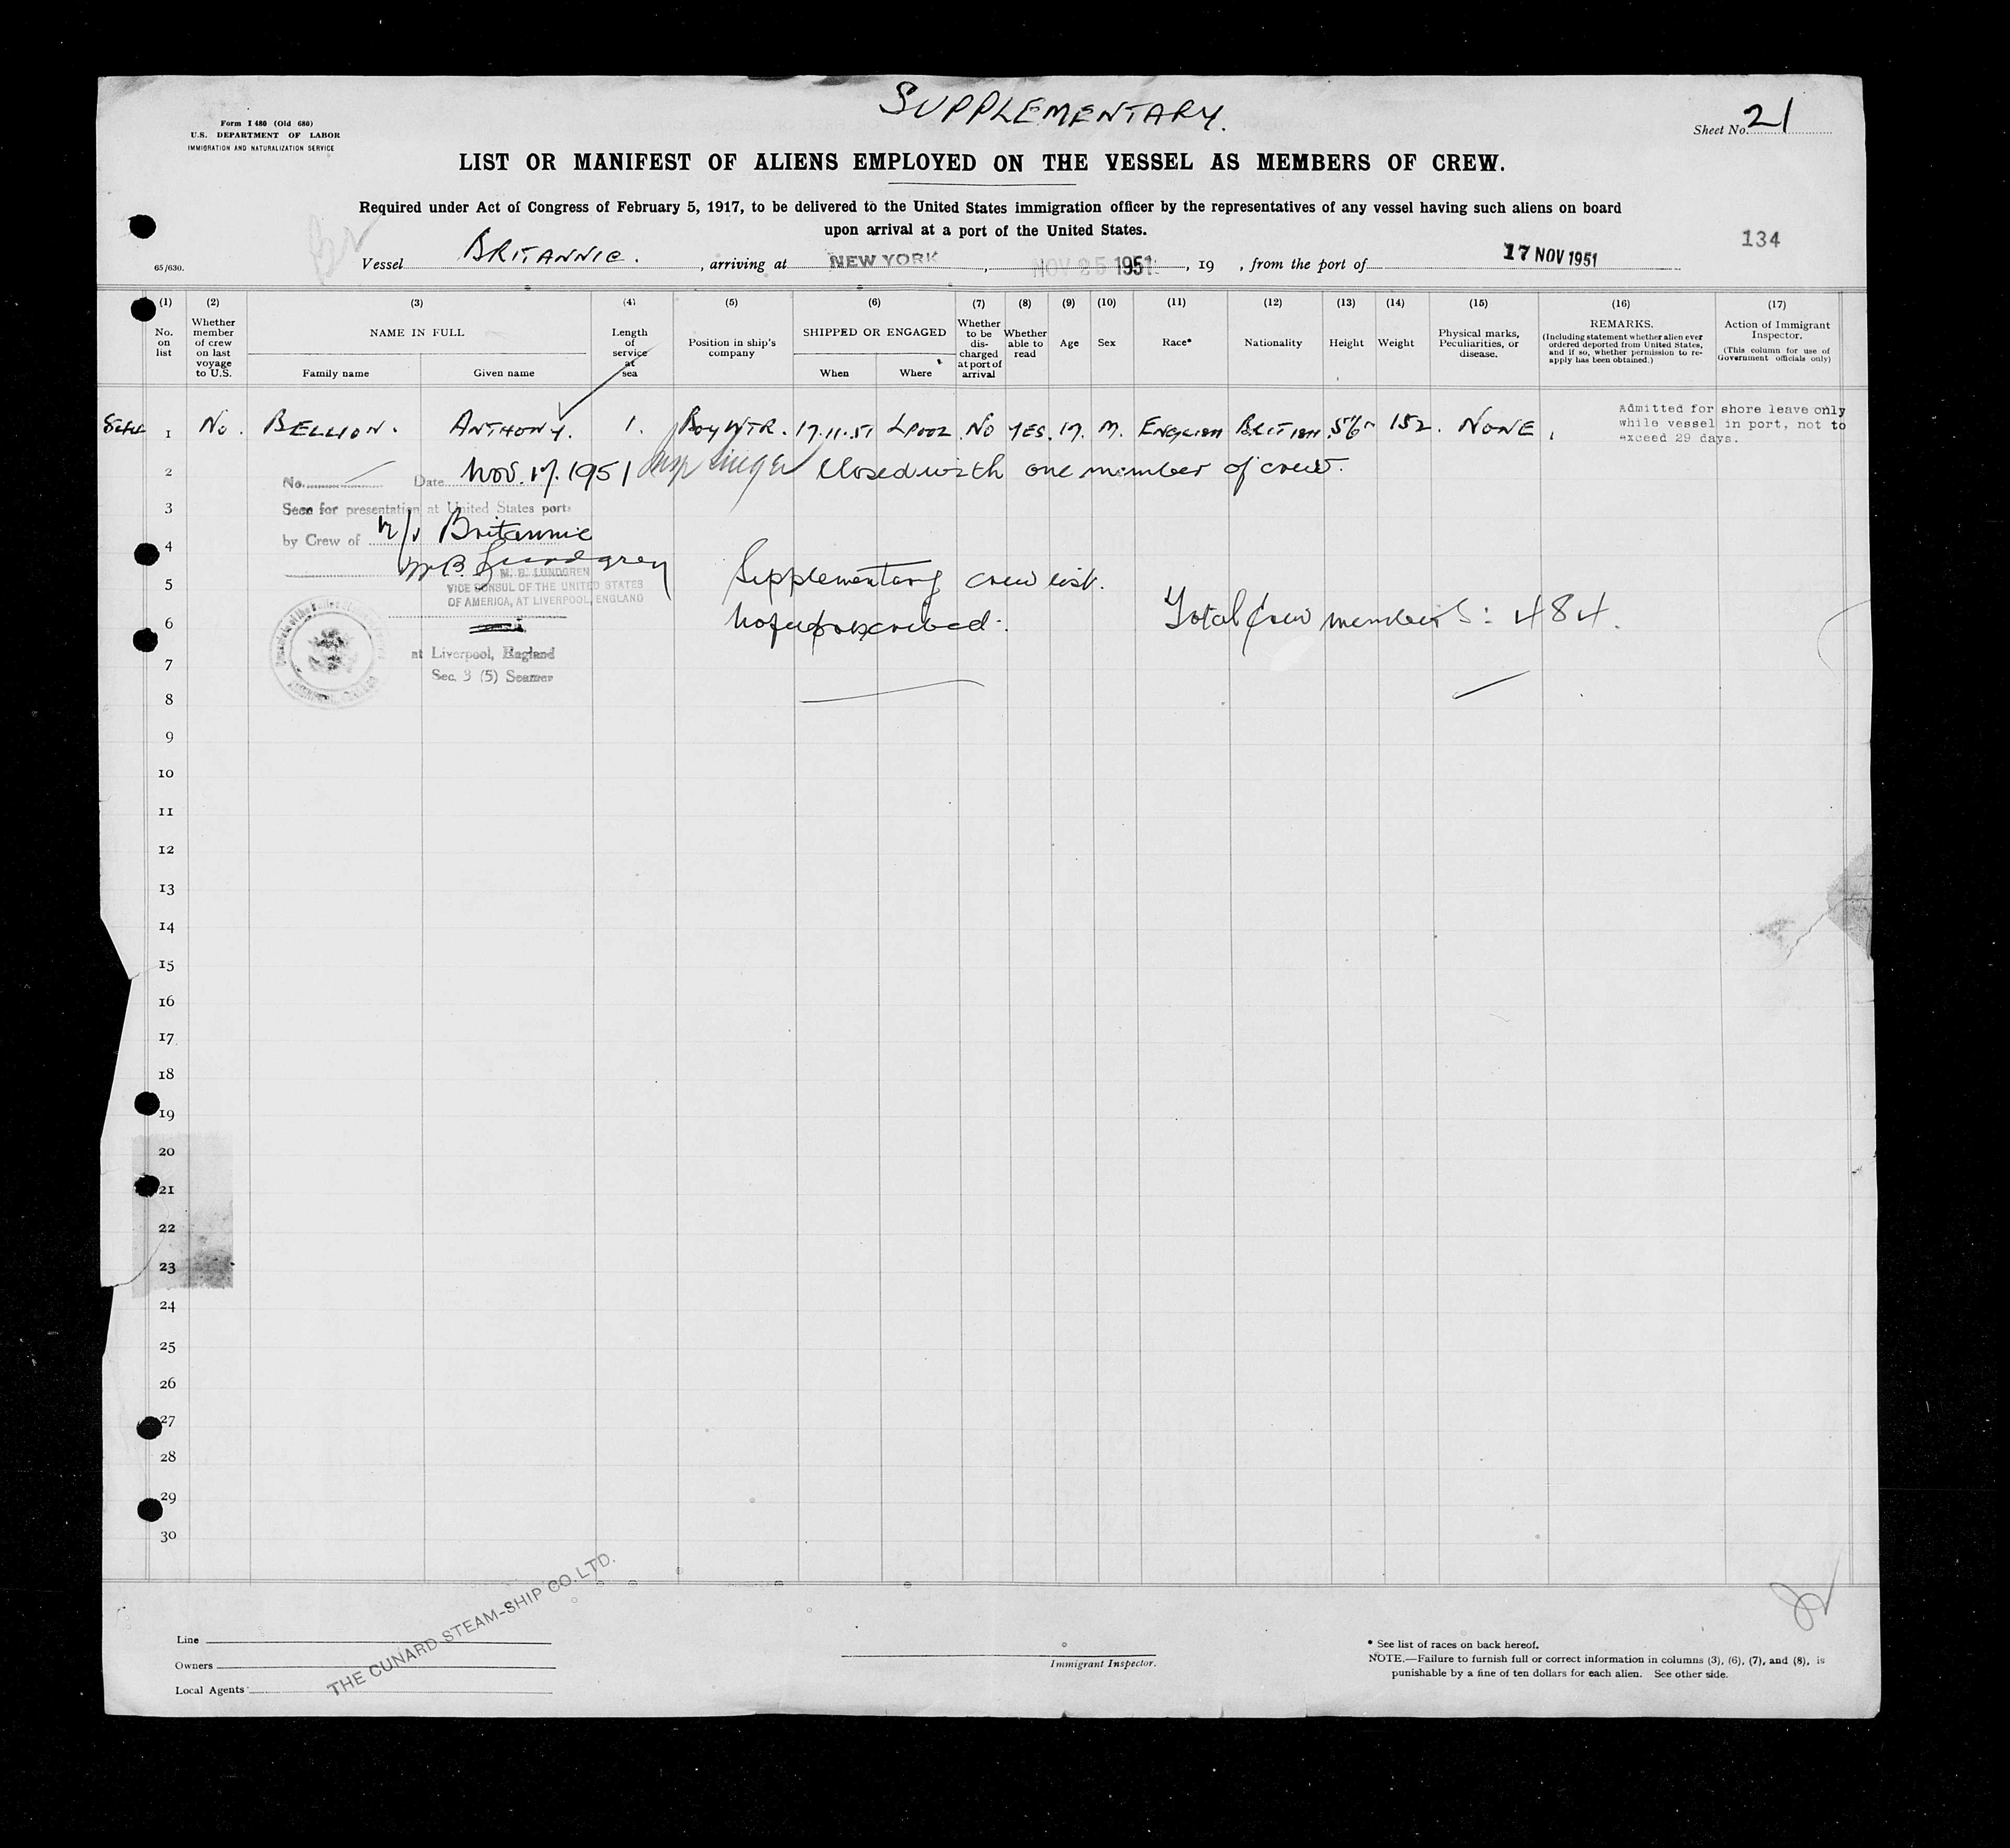 SUPPLEMENTARY.
Form I 480 (Old 680)
U.S. DEPARTMENT OF LABOR
IMMIGRATION AND NATURALIZATION SERVICE
Sheet No. 21
LIST OR MANIFEST OF ALIENS EMPLOYED ON THE VESSEL AS MEMBERS OF CREW.
Required under Act of Congress of February 5, 1917, to be delivered to the United States immigration officer by the representatives of any vessel having such aliens on board
upon arrival at a port of the United States.
134
65/630.
Vessel BRITANNIC. , arriving at NEW YORK , NOV 25 1951 , 19 , from the port of 17 NOV 1951
(1) (2) (3) (4) (5) (6) (7) (8) (9) (10) (11) (12) (13) (14) (15) (16) (17)
No. on list
Whether member of crew on last voyage to U.S.
NAME IN FULL
Family name
Given name
Length of service at sea
Position in ship's company
SHIPPED OR ENGAGED
When
Where
Whether to be discharged at port of arrival
Whether able to read
Age
Sex
Race*
Nationality
Height
Weight
Physical marks, Peculiarities, or disease.
REMARKS.
(Including statement whether alien ever ordered deported from United States, and if so, whether permission to re-apply has been obtained.)
Action of Immigrant Inspector.
(This column for use of Government officials only)
1 No. BELLION. ANTHONY. 1. BOY WTR. 17.11.51 LPOOL NO YES. 17. M. ENGLISH BRITISH 5'6" 152. NONE.
Admitted for shore leave only
while vessel in port, not to
exceed 29 days.
2 No. Date Nov. 17. 1951 Closed with one member of crew.
3 Seen for presentation at United States ports
4 by Crew of M/V Britannic
M.B. Lundgren
M. B. LUNDGREN
5 VICE CONSUL OF THE UNITED STATES
OF AMERICA, AT LIVERPOOL, ENGLAND
Supplementary crew list.
6 No fee prescribed. Total crew members: 484.
7 at Liverpool, England
Sec. 3 (5) Seamen
8
9
10
11
12
13
14
15
16
17
18
19
20
21
22
23
24
25
26
27
28
29
30
THE CUNARD STEAM-SHIP CO. LTD.
Line
Owners
Local Agents
Immigrant Inspector.
* See list of races on back hereof.
NOTE.—Failure to furnish full or correct information in columns (3), (6), (7), and (8), is
punishable by a fine of ten dollars for each alien. See other side.